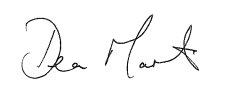 Dea Mart